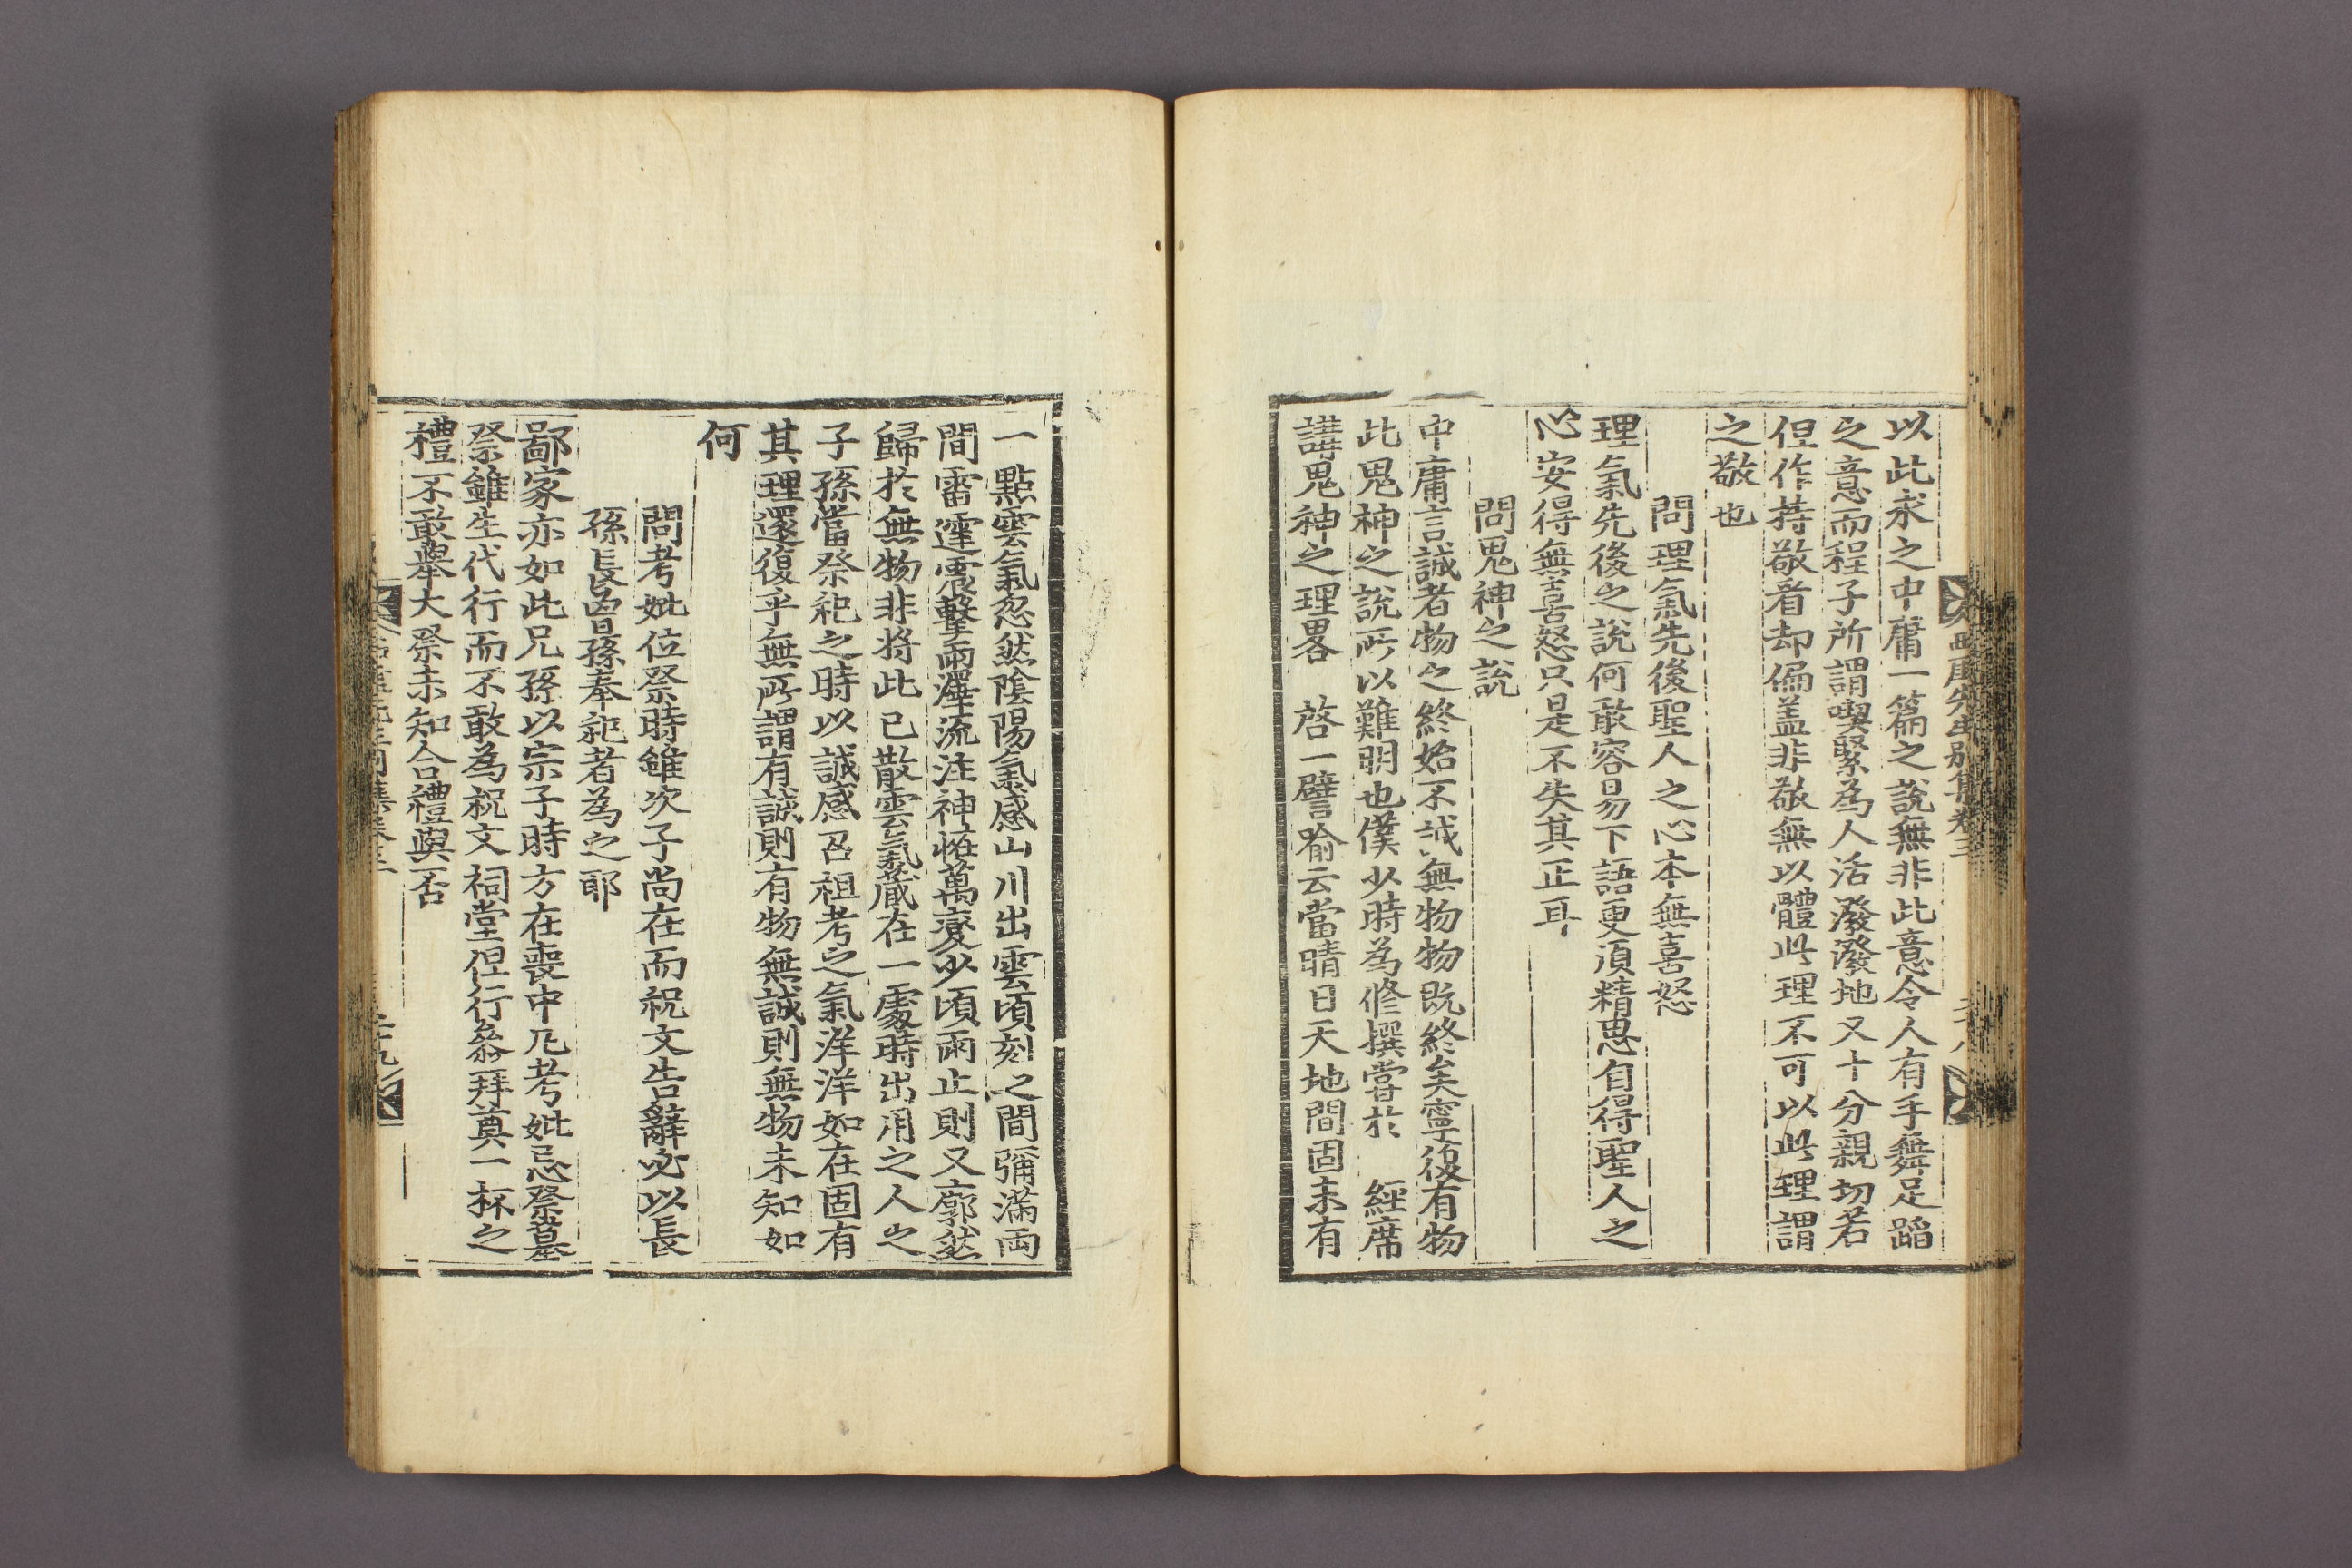 西厓先生別集卷三
二十八
以此求之中庸一篇之說無非此意令人有手舞足蹈
之意而程子所謂喫緊為人活潑潑地又十分親切若
但作持敬看却偏盖非敬無以體此理不可以此理謂
之敬也
問理氣先後聖人之心本無喜怒
理氣先後之說何敢容易下語更須精思自得聖人之
心安得無喜怒只是不失其正耳
問鬼神之說
中庸言誠者物之終始不誠無物物既終矣寧復有物
此鬼神之說所以難明也僕少時為修撰嘗於 經席
講鬼神之理畧 啓一譬喻云當晴日天地間固未有
一點雲氣忽然陰陽氣感山川出雲頃刻之間彌滿兩
間雷霆震擊雨澤流注神恠萬變少頃雨止則又廓然
歸於無物非將此已散雲氣藏在一處時出用之人之
子孫當祭祀之時以誠感召祖考之氣洋洋如在固有
其理還復乎無所謂有誠則有物無誠則無物未知如
何
問考妣位祭時雖次子尚在而祝文告辭必以長
孫長曾孫奉祀者為之耶
鄙家亦如此兄孫以宗子時方在喪中凡考妣忌祭墓
祭雖生代行而不敢為祝文祠堂但行叅拜奠一杯之
禮不敢舉大祭未知合禮與否
二十九